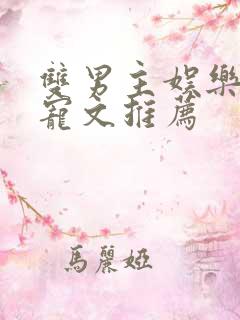 雙男主娛樂
寵文推薦
馬麗婭